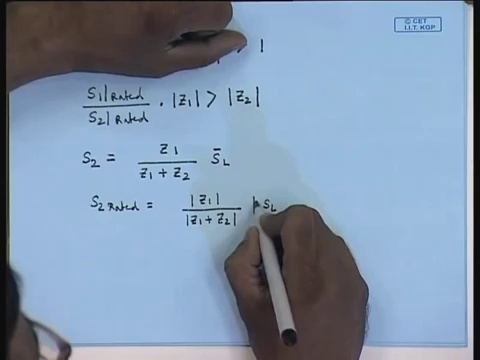 © CET
I.I.T. KGP
1
S₁|Rated / S₂|Rated · |Z₁| > |Z₂|
S₂ = Z₁ / (Z₁ + Z₂) S̄L
S₂ Rated = |Z₁| / |Z₁ + Z₂| SL